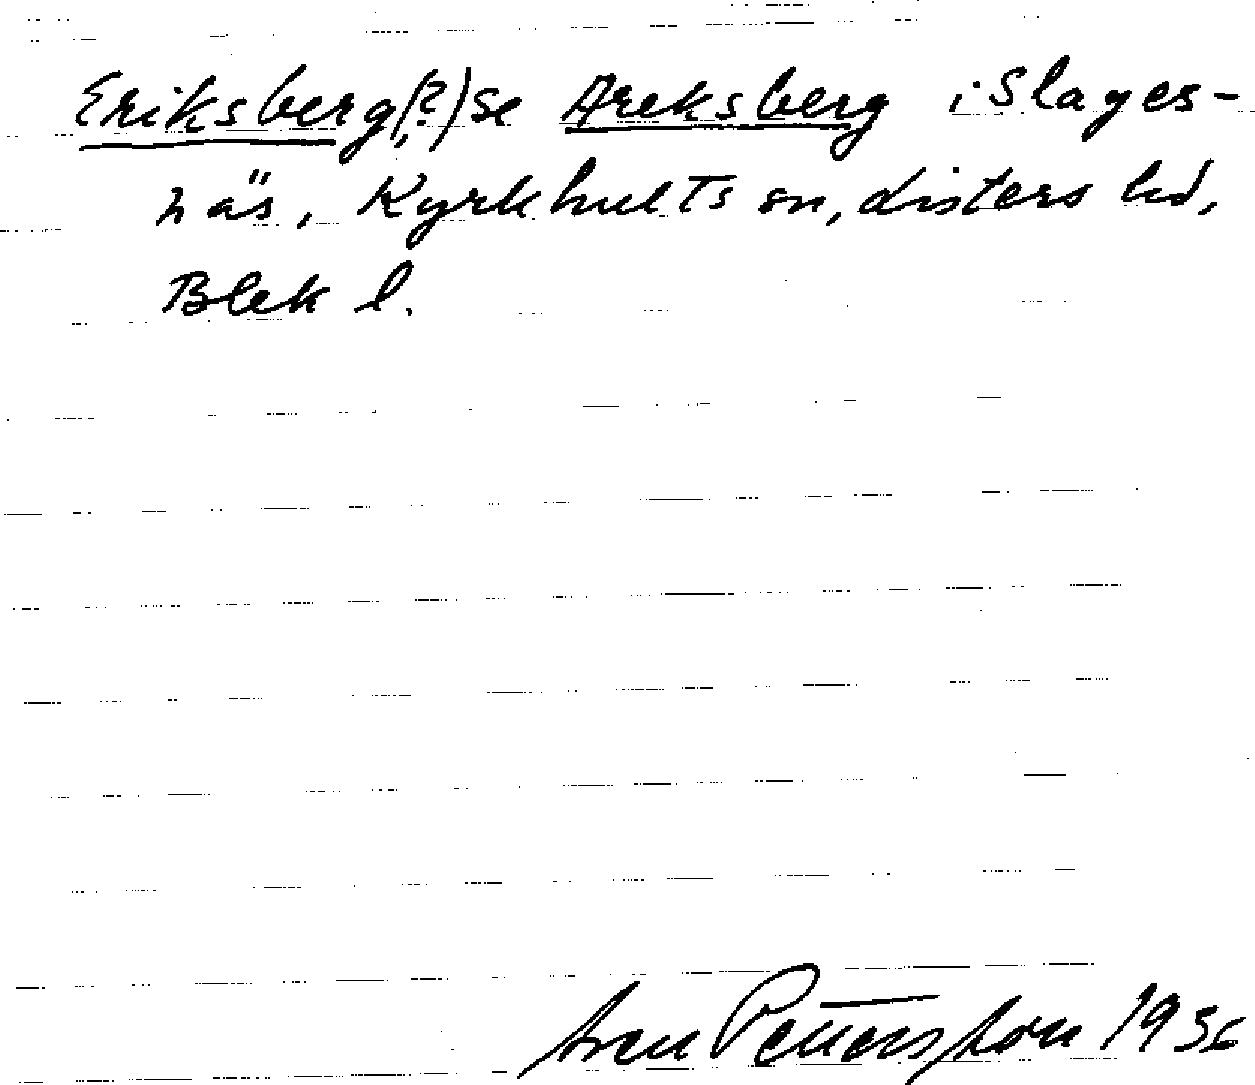 Eriksberg(?) se Areksberg i Slages-
näs, Kyrkhults sn, Listers hd,
Blek l.
Sven Pettersson 1936